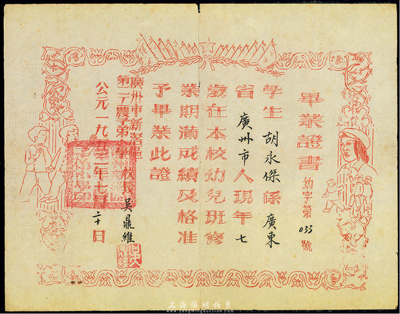 畢業證書
幼字第033號
學生胡永傑係廣東
省廣州市人現年七
歲在本校幼兒班修
業期滿成績及格准
予畢業此證
廣州市新
第二工農子弟學校校長吳鼎維
公元一九五三年七月二十日